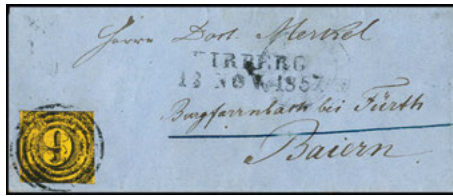 Herrn Doct. Merkel
KIRBERG
13 NOV. 1857
Burgfarrnbach bei Fürth
Baiern.
9